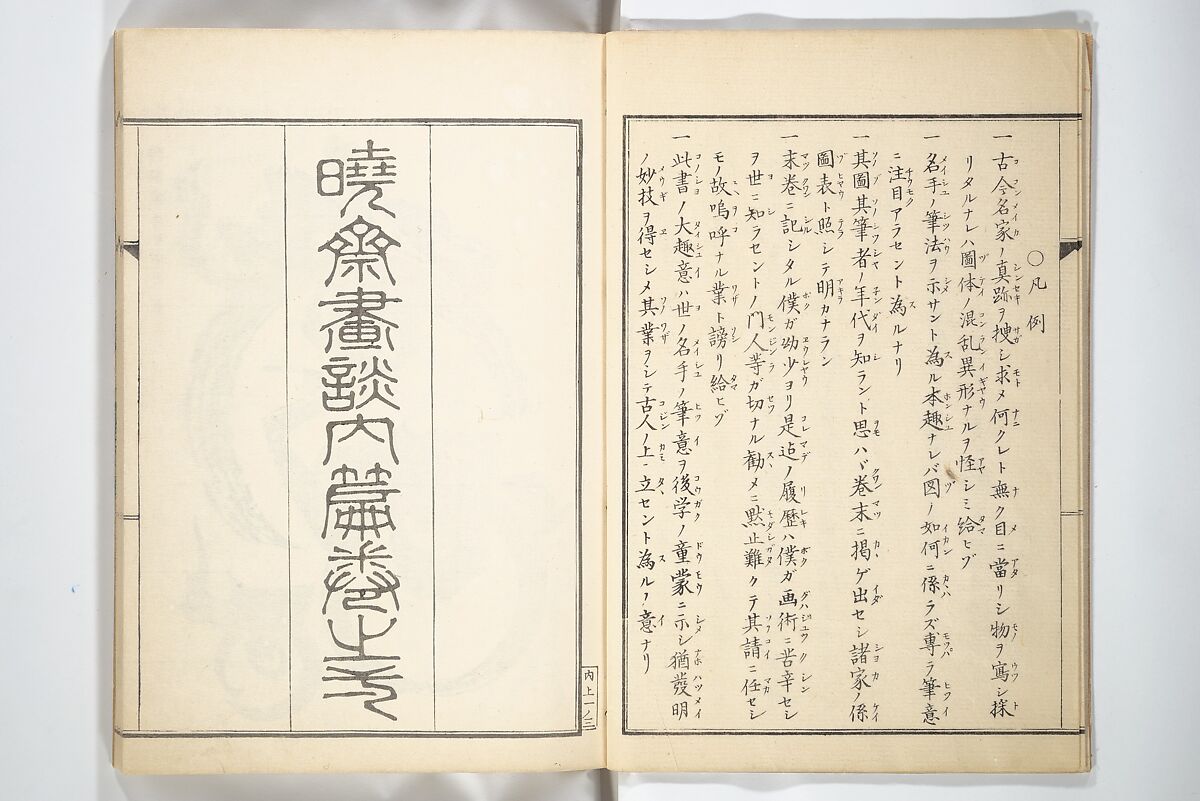 ○凡例
一古今名家ノ真跡ヲ捜シ求メ何クレト無ク目ニ當リシ物ヲ寫シ採
リタルナレハ圖体ノ混乱異形ナルヲ怪シミ給ヒゾ
一名手ノ筆法ヲ示サント為ル本趣ナレバ図ノ如何ニ係ラズ專ラ筆意
ニ注目アラセント為ルナリ
一其圖其筆者ノ年代ヲ知ラント思ハヾ巻末ニ掲ゲ出セシ諸家ノ係
圖表ト照シテ明カナラン
一末巻ニ記シタル僕ガ幼少ヨリ是迠ノ履歴ハ僕ガ画術ニ苦辛セシ
ヲ世ニ知ラセントノ門人等ガ切ナル勧メニ黙止難クテ其請ニ任セシ
モノ故嗚呼ナル業ト謗リ給ヒゾ
一此書ノ大趣意ハ世ノ名手ノ筆意ヲ後学ノ童蒙ニ示シ猶發明
ノ妙技ヲ得セシメ其業ヲシテ古人ノ上ニ立セント為ルノ意ナリ
曉齋畫談內篇卷之上
内上一ノ三